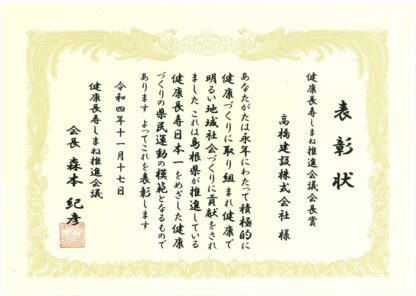 表彰状
健康長寿しまね推進会議会長賞
高橋建設株式会社 様
あなたがたは永年にわたって積極的に
健康づくりに取り組まれ健康で
明るい地域社会づくりに貢献をされ
ました これは島根県が推進している
健康長寿日本一をめざした健康
づくりの県民運動の模範となるもので
あります よってこれを表彰します
令和四年十一月十七日
健康長寿しまね推進会議
会長 森本 紀彦